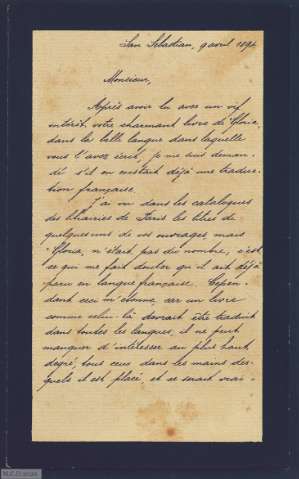 San Sebastian, 9 avril 1894
Monsieur,
Après avoir lu avec un vif
intérêt, votre charmant livre de Gloria,
dans la belle langue dans laquelle
vous l'avez écrit, je me suis deman-
dé s'il en existait déjà une traduc-
tion française.
J'ai vu dans les catalogues
des librairies de Paris les titres de
quelques uns de vos ouvrages, mais
"Gloria, n'était pas du nombre, c'est
ce qui me fait douter qu'il ait déjà
paru en langue française. Cepen-
dant ceci m'étonne, car un livre
comme celui-là devrait être traduit
dans toutes les langues, il ne peut
manquer d'intéresser au plus haut
degré, tous ceux dans les mains des-
quels il est placé, et ce serait vrai-